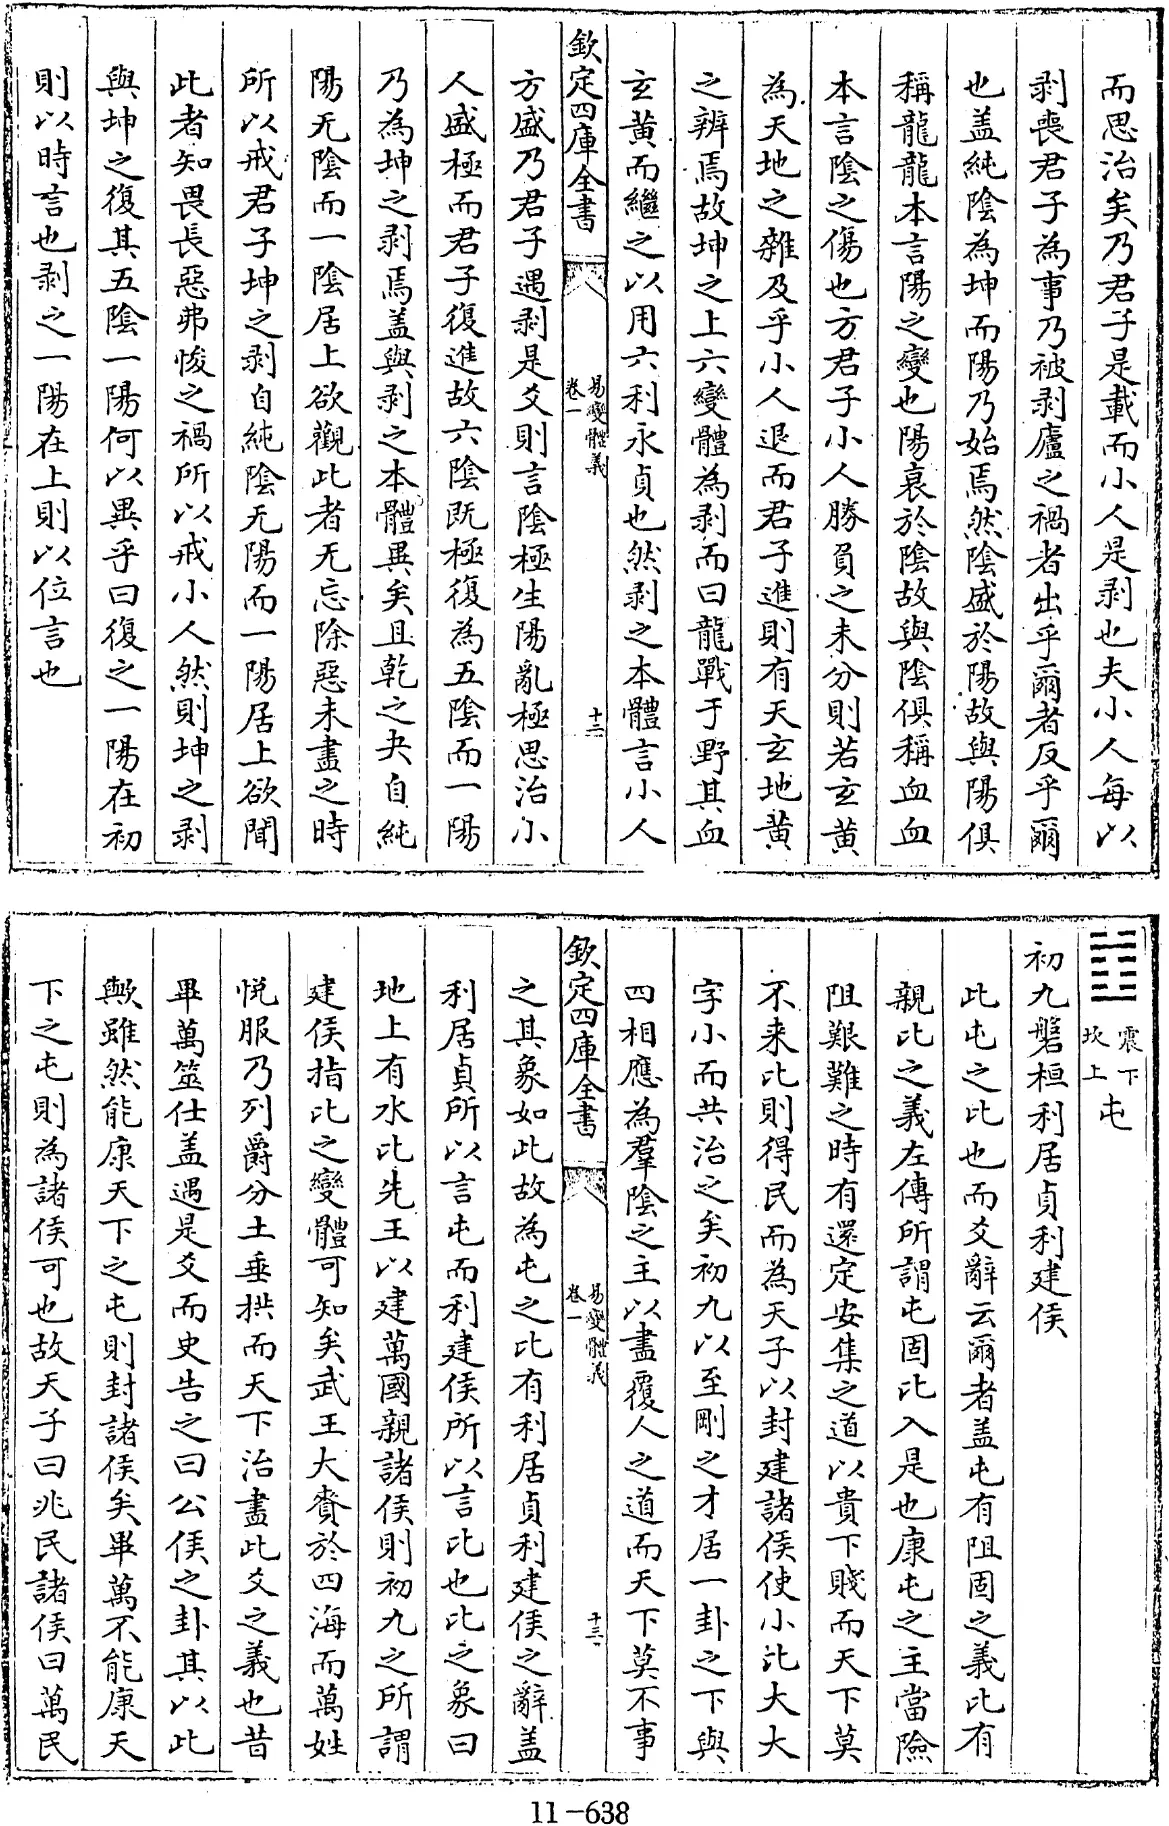 而思治矣乃君子是載而小人是剥也夫小人每以
剥喪君子為事乃被剥廬之禍者出乎爾者反乎爾
也盖純陰為坤而陽乃始焉然陰盛於陽故與陽俱
稱龍龍本言陽之變也陽衰於陰故與陰俱稱血血
本言陰之傷也方君子小人勝負之未分則若玄黄
為天地之雜及乎小人退而君子進則有天玄地黄
之辨焉故坤之上六變體為剥而曰龍戰于野其血
玄黄而繼之以用六利永貞也然剥之本體言小人
欽定四庫全書
易變體義
卷一
十二
方盛乃君子遇剥是爻則言陰極生陽亂極思治小
人盛極而君子復進故六陰既極復為五陰而一陽
乃為坤之剥焉盖與剥之本體異矣且乾之夬自純
陽无陰而一陰居上欲觀此者无忘除惡未盡之時
所以戒君子坤之剥自純陰无陽而一陽居上欲聞
此者知畏長惡弗悛之禍所以戒小人然則坤之剥
與坤之復其五陰一陽何以異乎曰復之一陽在初
則以時言也剥之一陽在上則以位言也
䷂
震下
坎上
屯
初九磐桓利居貞利建侯
此屯之比也而爻辭云爾者盖屯有阻固之義比有
親比之義左傳所謂屯固比入是也康屯之主當險
阻艱難之時有還定安集之道以貴下賤而天下莫
不来比則得民而為天子以封建諸侯使小比大大
字小而共治之矣初九以至剛之才居一卦之下與
四相應為羣陰之主以盡覆人之道而天下莫不事
欽定四庫全書
易變體義
卷一
十三
之其象如此故為屯之比有利居貞利建侯之辭盖
利居貞所以言屯而利建侯所以言比也比之象曰
地上有水比先王以建萬國親諸侯則初九之所謂
建侯指比之變體可知矣武王大賚於四海而萬姓
悦服乃列爵分土垂拱而天下治盡此爻之義也昔
畢萬筮仕盖遇是爻而史告之曰公侯之卦其以此
歟雖然能康天下之屯則封諸侯矣畢萬不能康天
下之屯則為諸侯可也故天子曰兆民諸侯曰萬民
11-638